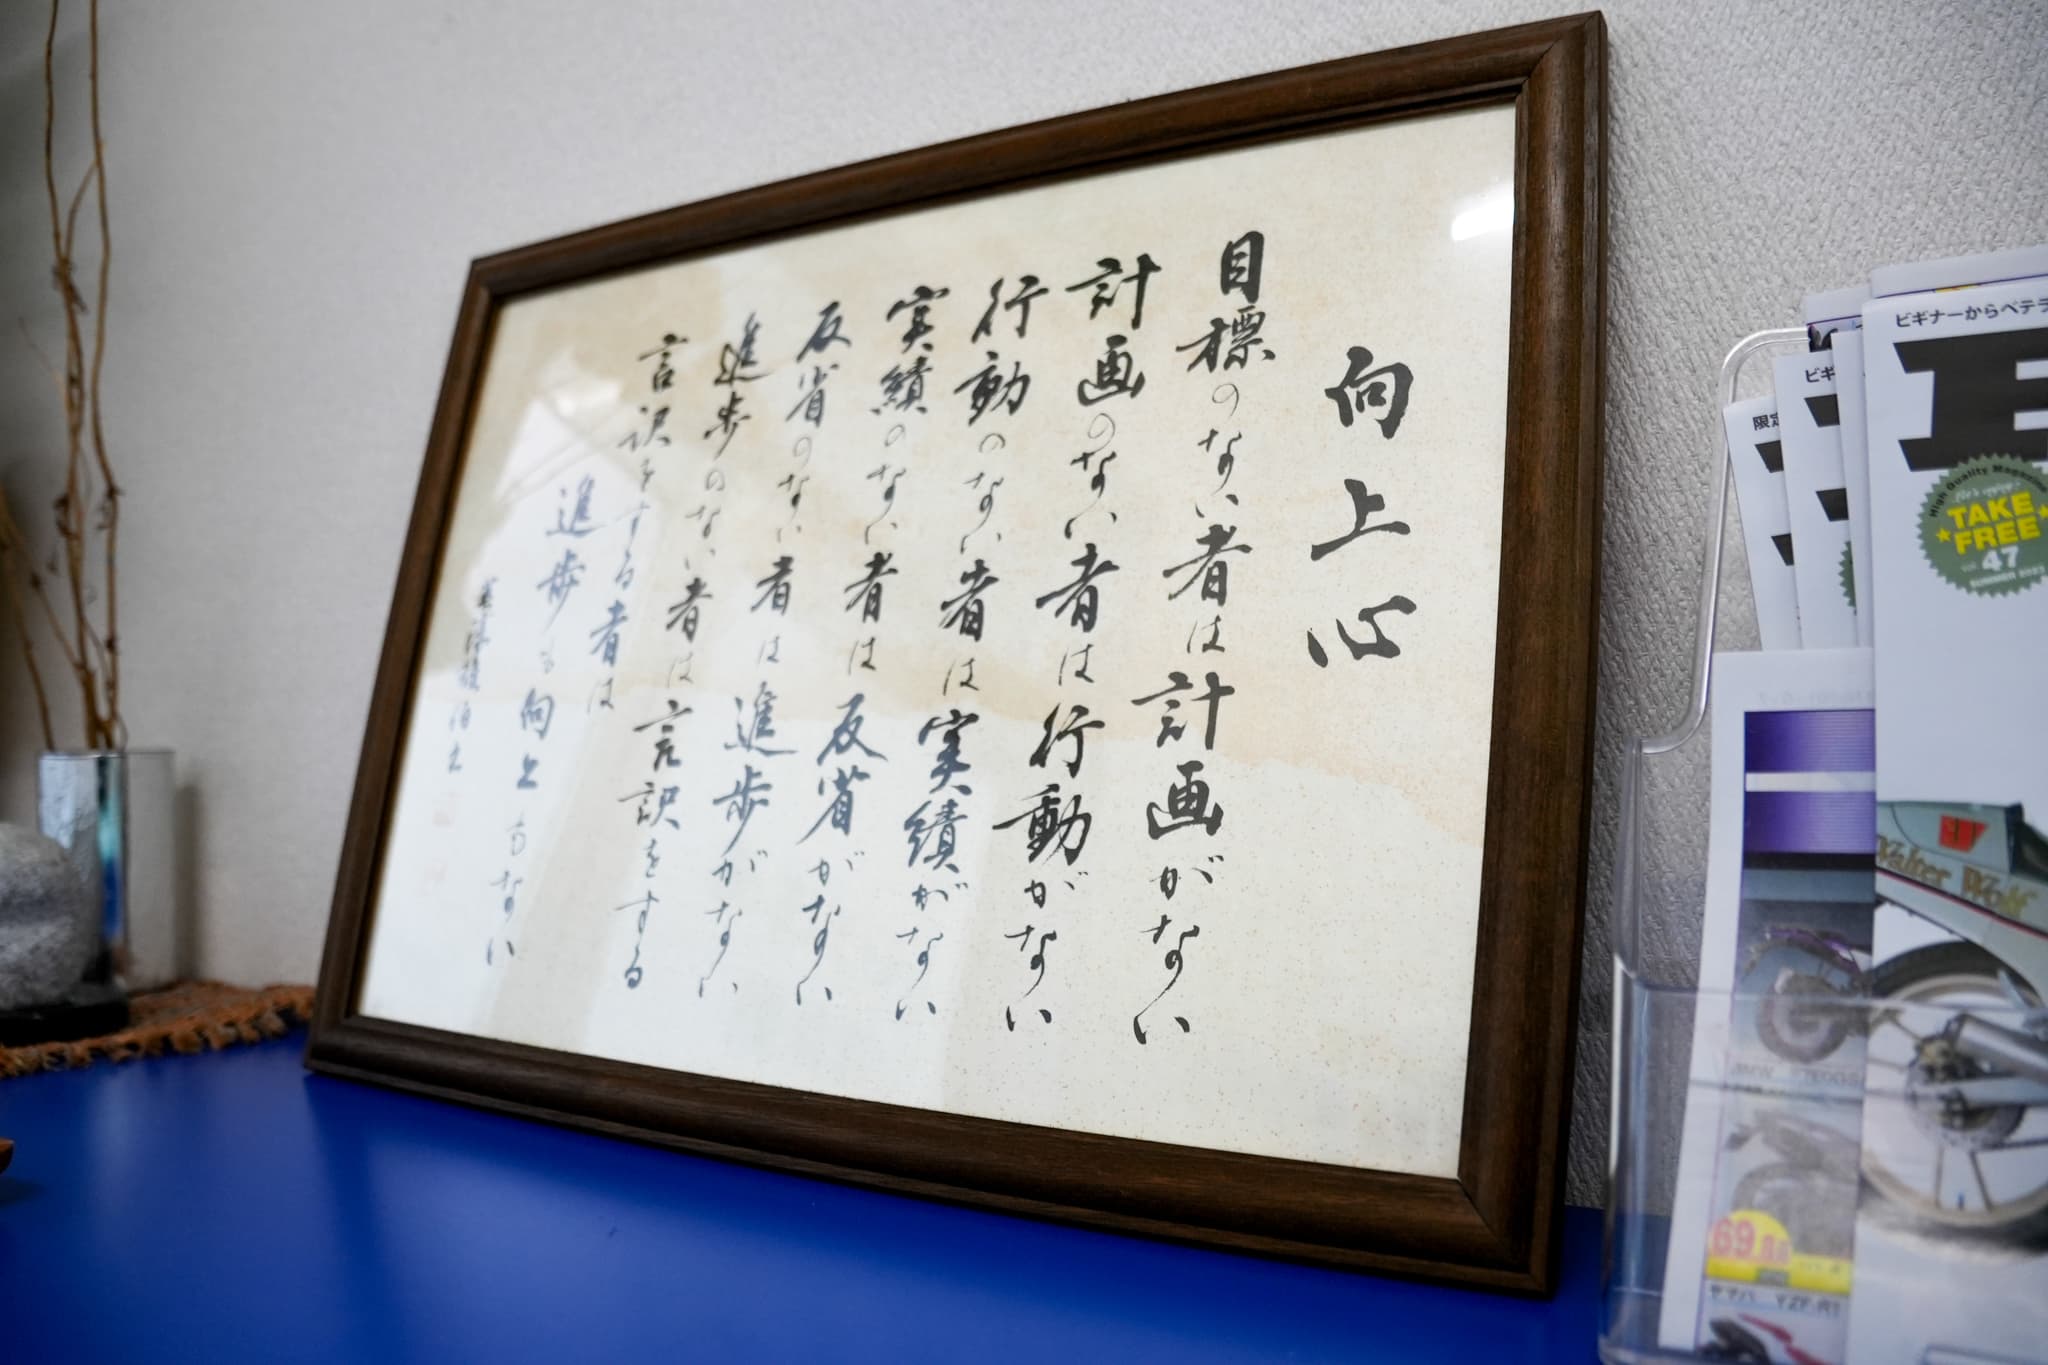 向上心
目標のない者は計画がない
計画のない者は行動がない
行動のない者は実績がない
実績のない者は反省がない
反省のない者は進歩がない
進歩のない者は言訳をする
言訳をする者は
進歩も向上もない
ビギナーからベテラ
ビギ
限定
High Quality Magazine
TAKE
FREE
47
Walter Wolf
69.
ヤマハ YZF-R1